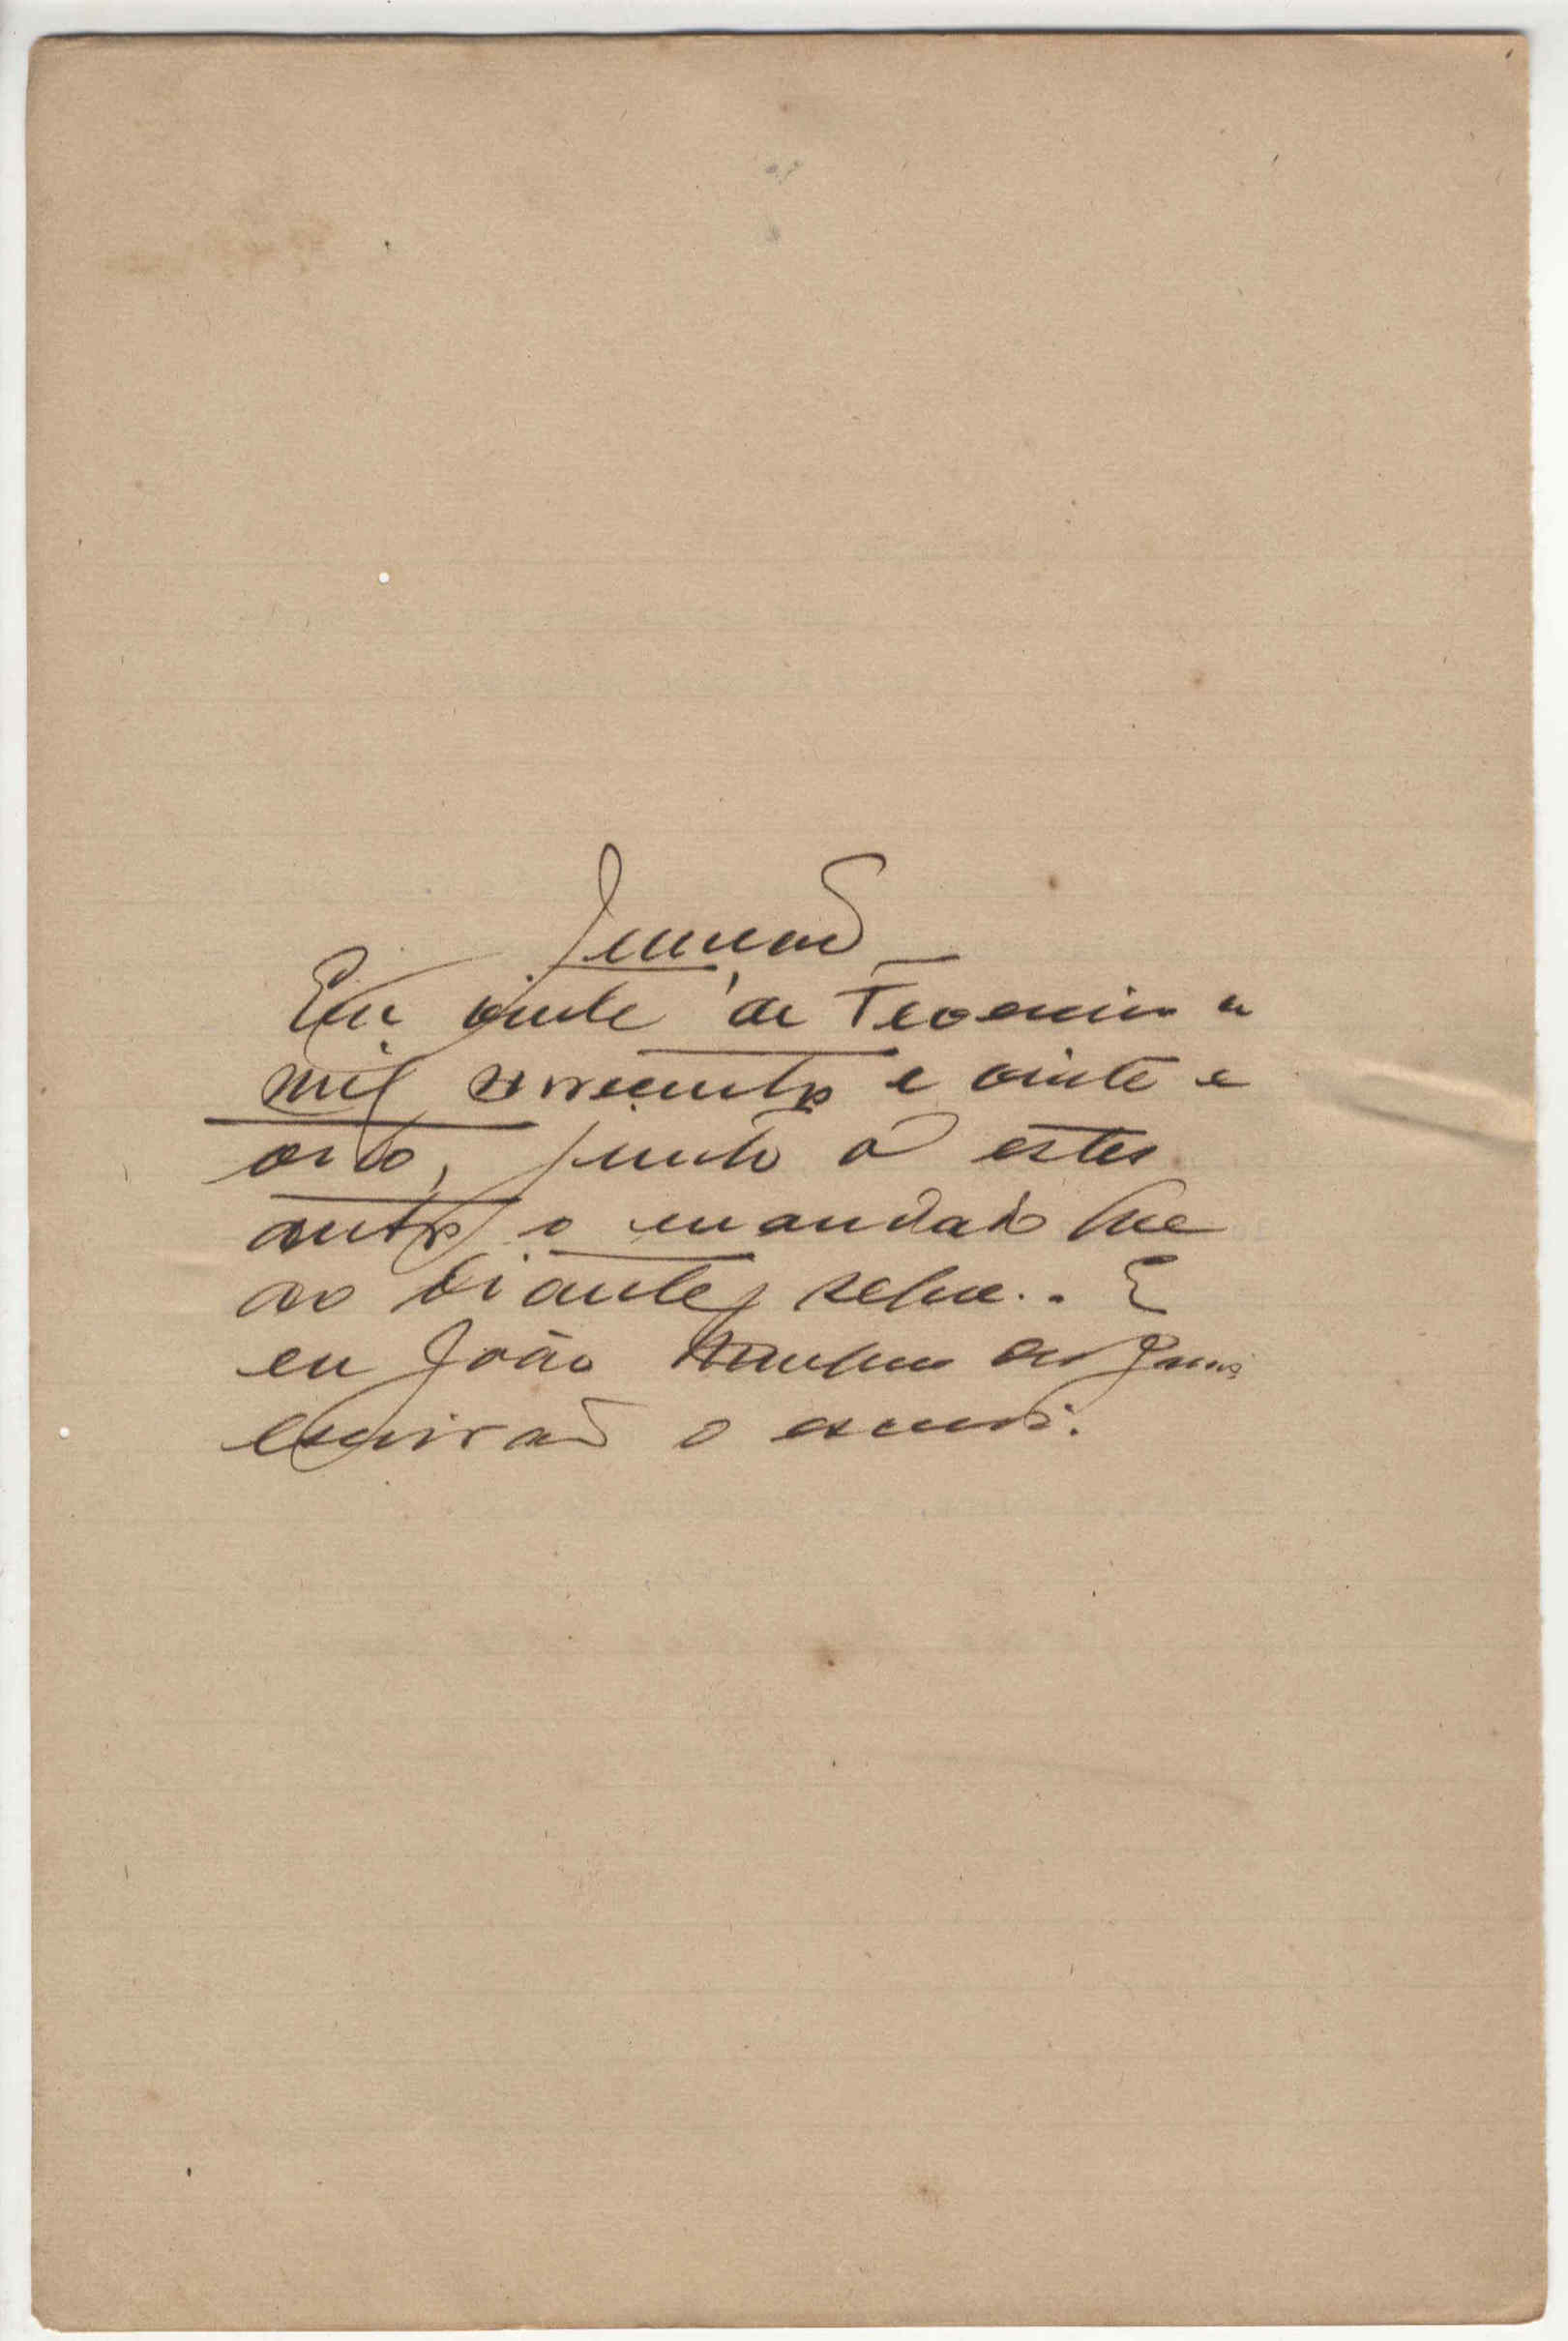 Juntada
Em vinte de Fevereiro de
mil novecentos e vinte e
oito, junto a estes
autos o mandado que
ao diante segue.. E
eu João
escrivão o escrevi.